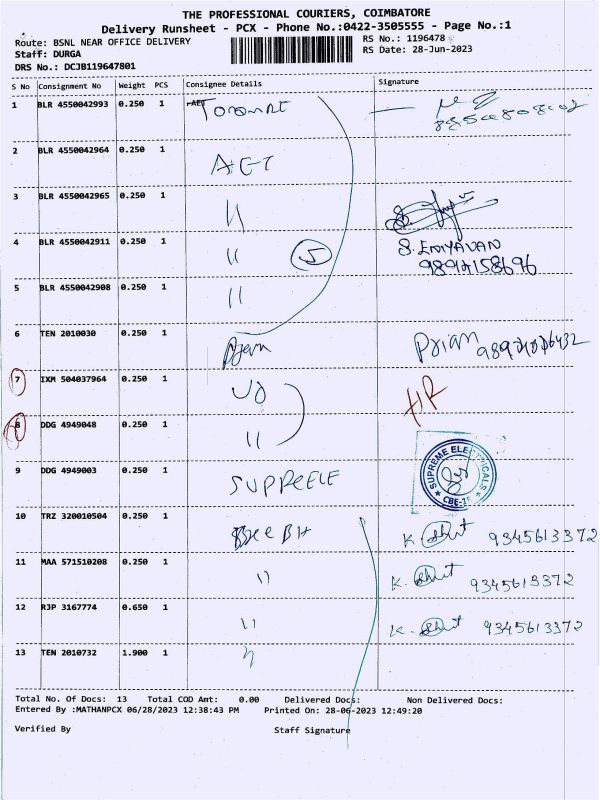 THE PROFESSIONAL COURIERS, COIMBATORE
Delivery Runsheet - PCX - Phone No.:0422-3505555 - Page No.:1
Route: BSNL NEAR OFFICE DELIVERY RS No.: 1196478
Staff: DURGA RS Date: 28-Jun-2023
DRS No.: DCJB119647801
S No Consignment No Weight PCS Consignee Details Signature
1 BLR 4550042993 0.250 1
2 BLR 4550042964 0.250 1
3 BLR 4550042965 0.250 1 11
4 BLR 4550042911 0.250 1 11 5 S. ENIYAVAN
5 BLR 4550042908 0.250 1 11
6 TEN 2010030 0.250 1
7 IXM 504037964 0.250 1
8 DDG 4949048 0.250 1 11
SUPREME ELECTRICALS
9 DDG 4949003 0.250 1 SUPPEELE
CBE-18
10 TRZ 320010504 0.250 1 9345613372
11 MAA 571510208 0.250 1 11 9345613372
12 RJP 3167774 0.650 1 11 9345613372
13 TEN 2010732 1.900 1
Total No. Of Docs: 13 Total COD Amt: 0.00 Delivered Docs: Non Delivered Docs:
Entered By :MATHANPCX 06/28/2023 12:38:43 PM Printed On: 28-06-2023 12:49:20
Verified By Staff Signature